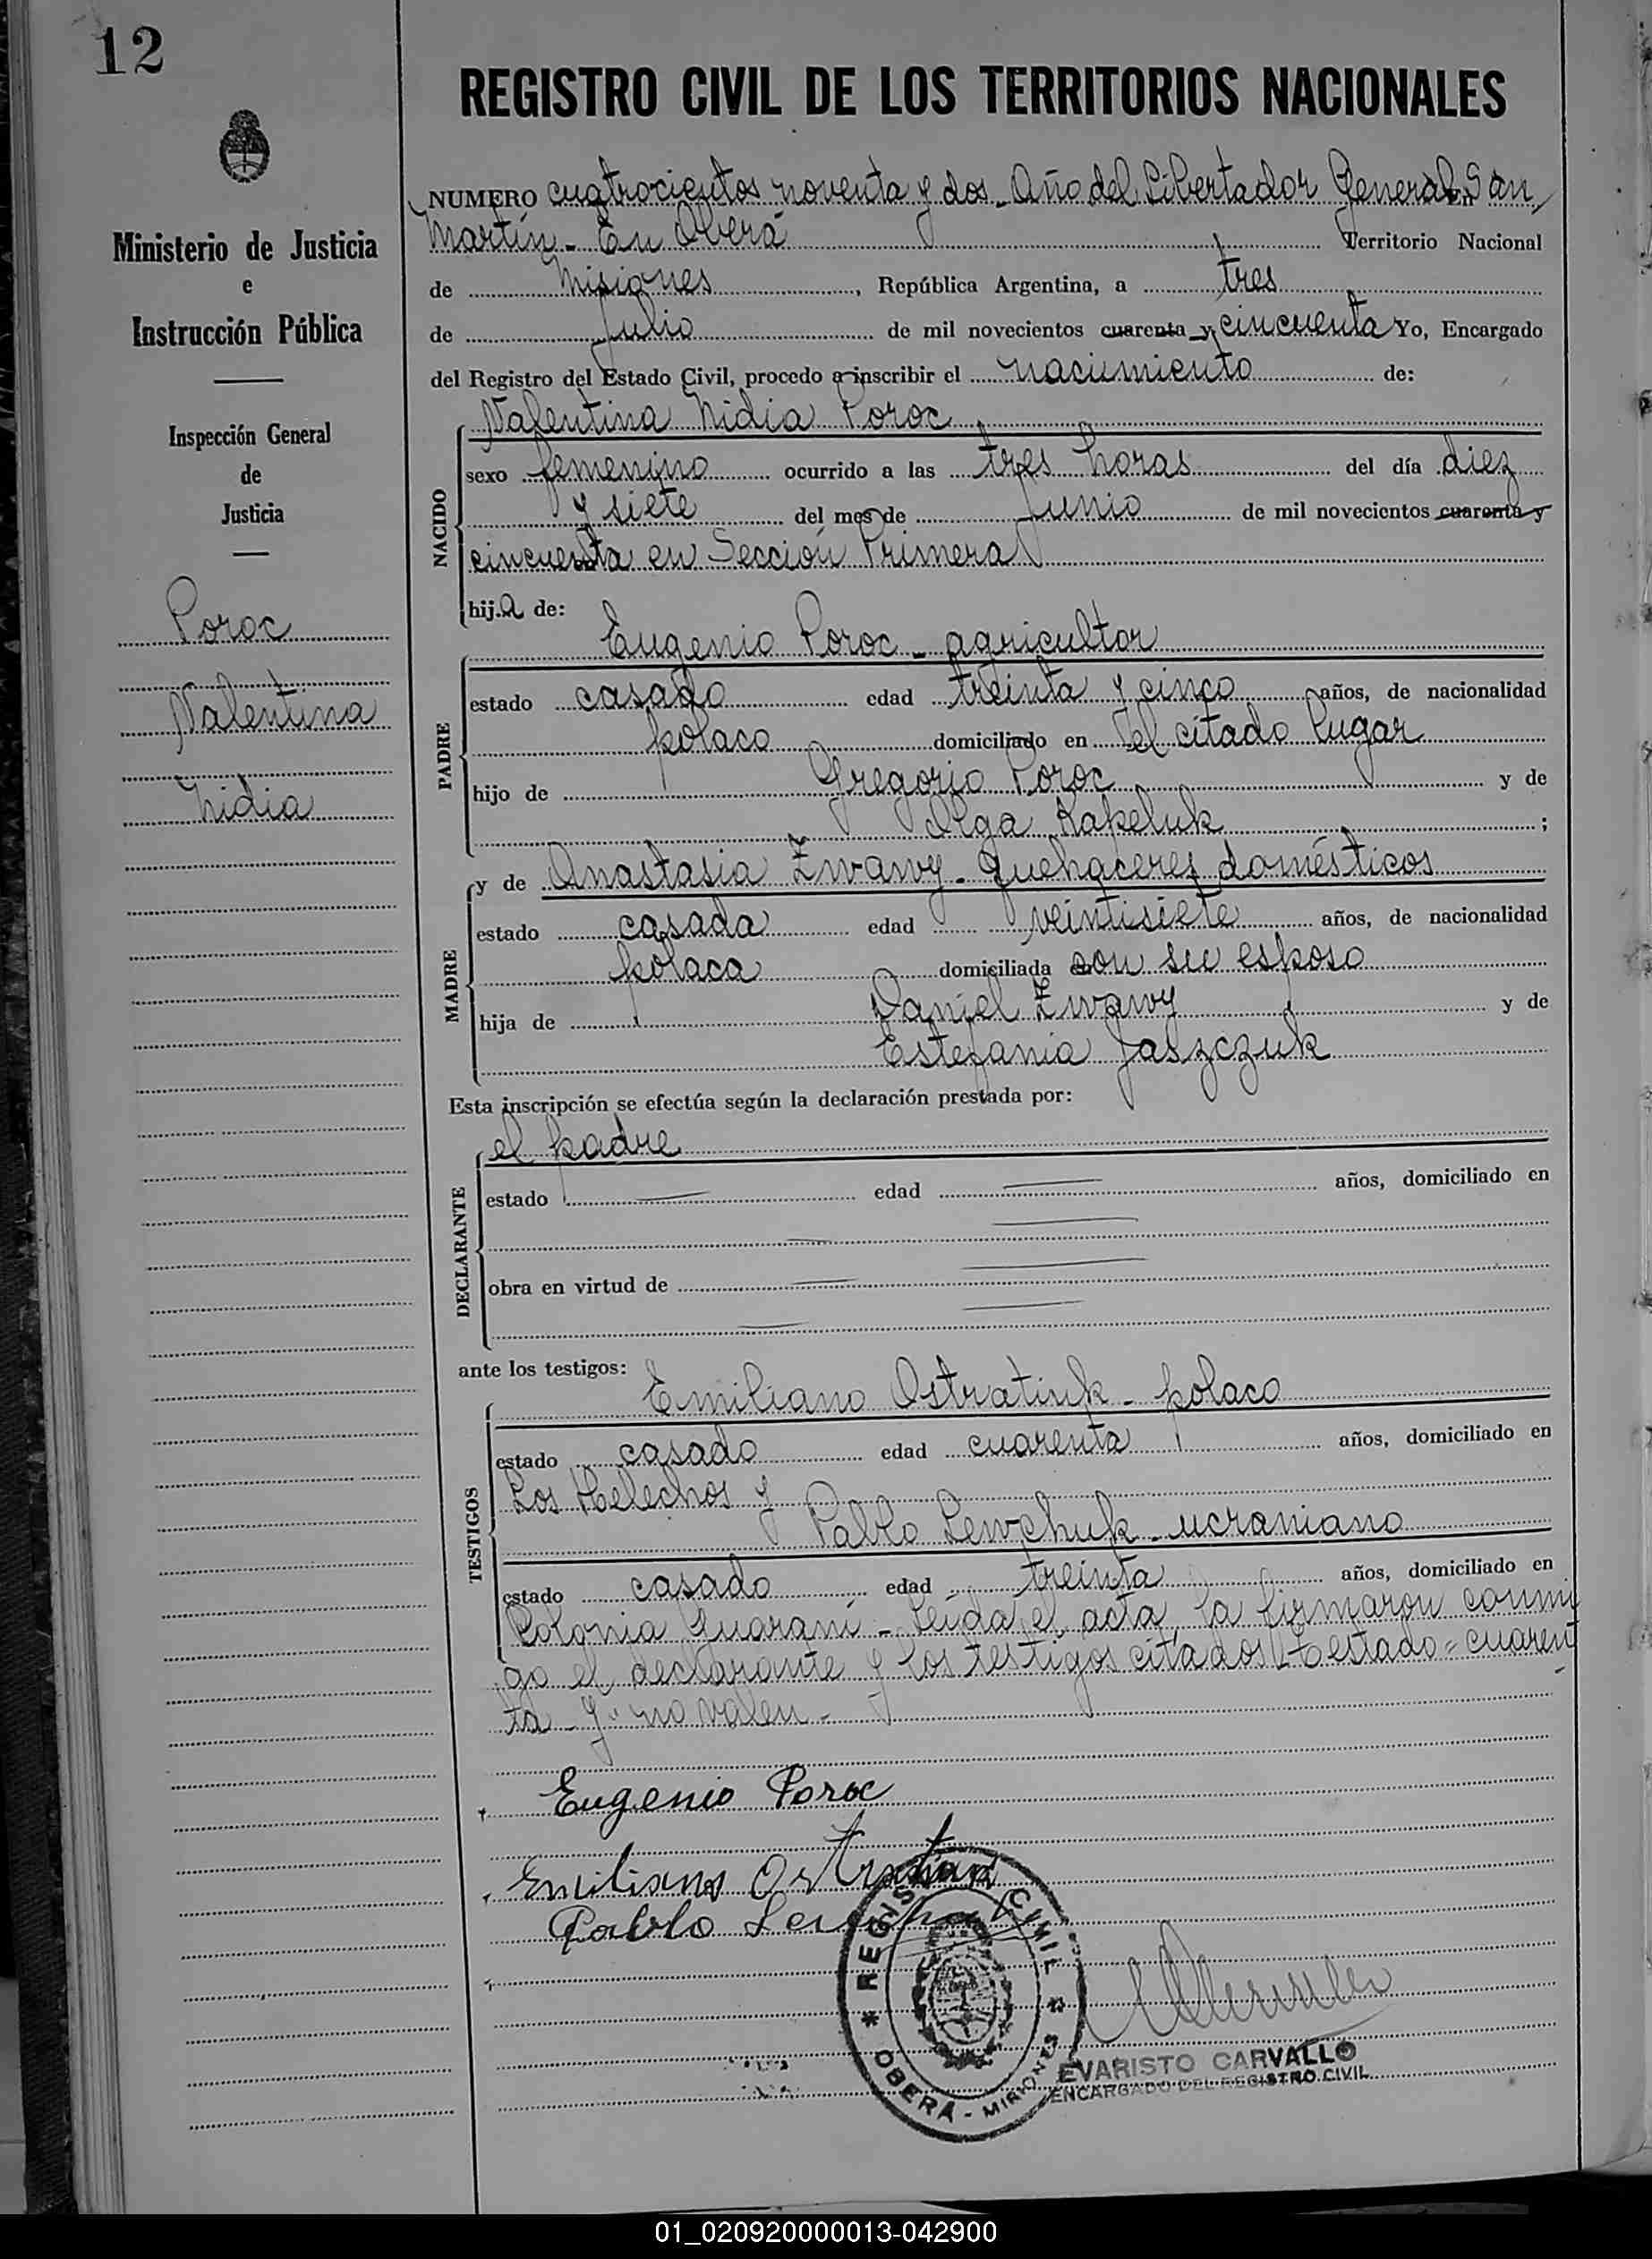 12
REGISTRO CIVIL DE LOS TERRITORIOS NACIONALES
Ministerio de Justicia
e
Instrucción Pública
Inspección General
de
Justicia
Poroc
Valentina
Nidia
NUMERO cuatrocientos noventa y dos - Año del Libertador General San
Martín - En Oberá Territorio Nacional
de Misiones, República Argentina, a tres
de Julio de mil novecientos cuarenta y cincuenta Yo, Encargado
del Registro del Estado Civil, procedo a inscribir el nacimiento de:
Valentina Nidia Poroc
NACIDO
sexo femenino ocurrido a las tres horas del día diez
y siete del mes de Junio de mil novecientos cuarenta y
cincuenta en Sección Primera
hija de:
Eugenio Poroc - agricultor
PADRE
estado casado edad treinta y cinco años, de nacionalidad
polaco domiciliado en el citado lugar
hijo de Gregorio Poroc y de
Olga Kakeluk ;
y de Anastasia Zwawy - quehaceres domésticos
MADRE
estado casada edad veintisiete años, de nacionalidad
polaca domiciliada con su esposo
hija de Daniel Zwawy y de
Estefania Jaszczuk
Esta inscripción se efectúa según la declaración prestada por:
el padre
DECLARANTE
estado edad años, domiciliado en
obra en virtud de
ante los testigos:
Emiliano Ostratiuk - polaco
TESTIGOS
estado casado edad cuarenta años, domiciliado en
Los Helechos y
Pablo Lewchuk - ucraniano
estado casado edad treinta años, domiciliado en
Colonia Guaraní - Leída el acta, la firmaron conmi
go el declarante y los testigos citados - Testado = cuaren
ta y = no valen -
Eugenio Poroc
Emiliano
Pablo
REGISTRO CIVIL
OBERÁ - MISIONES
EVARISTO CARVALLO
ENCARGADO DEL REGISTRO CIVIL
01_020920000013-042900